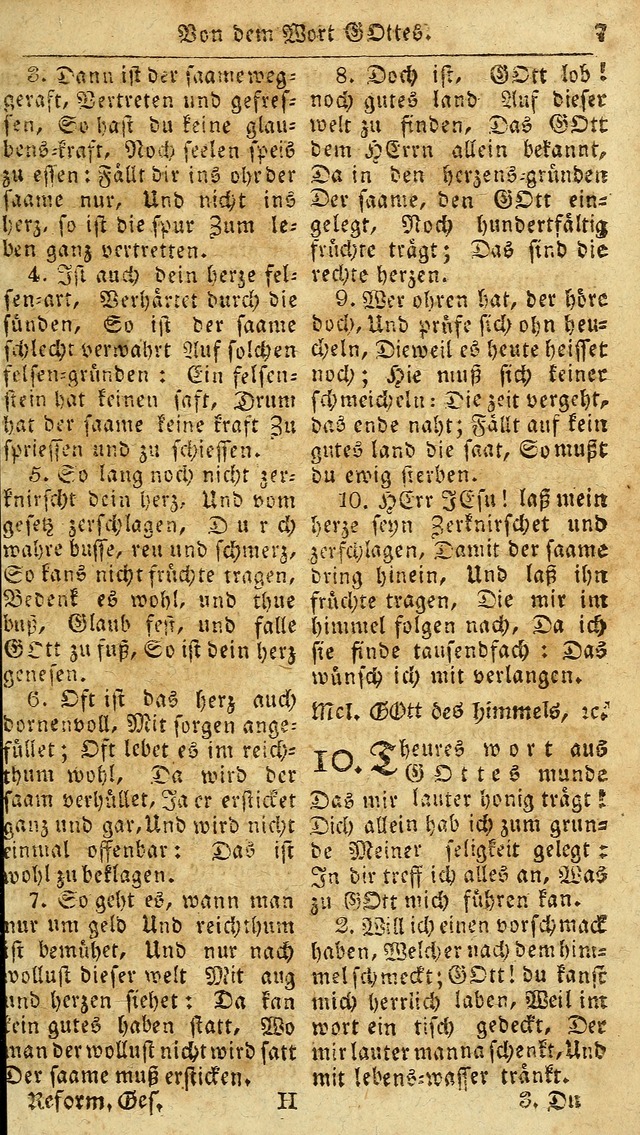 Von dem Wort GOttes. 7
3. Dann ist der saame weg-
geraft, Vertreten und gefres-
sen, So hast du keine glau-
bens-kraft, Noch seelen speis
zu essen: Fällt dir ins ohr der
saame nur, Und nicht ins
herz, so ist die spur Zum le-
ben ganz vertretten.
4. Ist auch dein herze fel-
sen-art, Verhärtet durch die
sünden, So ist der saame
schlecht verwahrt Auf solchen
felsen-gründen: Ein felsen-
stein hat keinen saft, Drum
hat der saame keine kraft Zu
spriessen und zu schiessen.
5. So lang noch nicht zer-
knirscht dein herz, Und vom
gesetz zerschlagen, Durch
wahre busse, reu und schmerz,
So kans nicht früchte tragen,
Bedenk es wohl, und thue
buß, Glaub fest, und falle
GOtt zu fuß, So ist dein herz
genesen.
6. Oft ist das herz auch
dornenvoll, Mit sorgen ange-
füllet; Oft lebet es im reich-
thum wohl, Da wird der
saam verhüllet, Ja er ersticket
ganz und gar, Und wird nicht
einmal offenbar: Das ist
wohl zu beklagen.
7. So geht es, wann man
nur um geld Und reichthum
ist bemühet, Und nur nach
wollust dieser welt Mit aug
und herzen siehet: Da kan
kein gutes haben statt, Wo
man der wollust nicht wird satt
Der saame muß ersticken.
Reform. Ges. H
8. Doch ist, GOtt lob!
noch gutes land Auf dieser
welt zu finden, Das GOtt
dem HErrn allein bekannt,
Da in den herzens-gründen
Der saame, den GOtt ein-
gelegt, Noch hundertfältig
früchte trägt; Das sind die
rechte herzen.
9. Wer ohren hat, der höre
doch, Und prüfe sich ohn heu-
cheln, Dieweil es heute heisset
noch; Hie muß sich keiner
schmeicheln: Die zeit vergeht,
das ende naht; Fällt auf kein
gutes land die saat, So mußt
du ewig sterben.
10. HErr JEsu! laß mein
herze seyn Zerknirschet und
zerschlagen, Damit der saame
dring hinein, Und laß ihn
früchte tragen, Die mir im
himmel folgen nach, Da ich
sie finde tausendfach: Das
wünsch ich mit verlangen.
Mel. GOtt des himmels, ꝛc.
10. Theures wort aus
GOttes munde
Das mir lauter honig trägt!
Dich allein hab ich zum grun-
de Meiner seligkeit gelegt:
In dir treff ich alles an, Was
zu GOtt mich führen kan.
2. Will ich einen vorschmack
haben, Welcher nach dem him-
mel schmeckt; GOtt! du kanst
mich herrlich laben, Weil im
wort ein tisch gedeckt, Der
mir lauter manna schenkt, Und
mit lebens-wasser tränkt.
3. Du